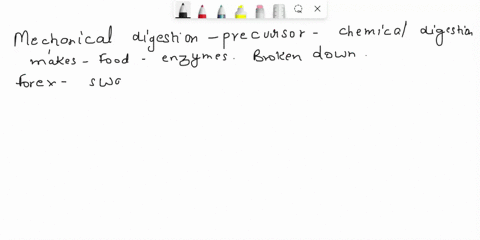 Mechanical digestion - precursor - chemical digestion
makes - Food - enzymes. Broken down.
forex - swa